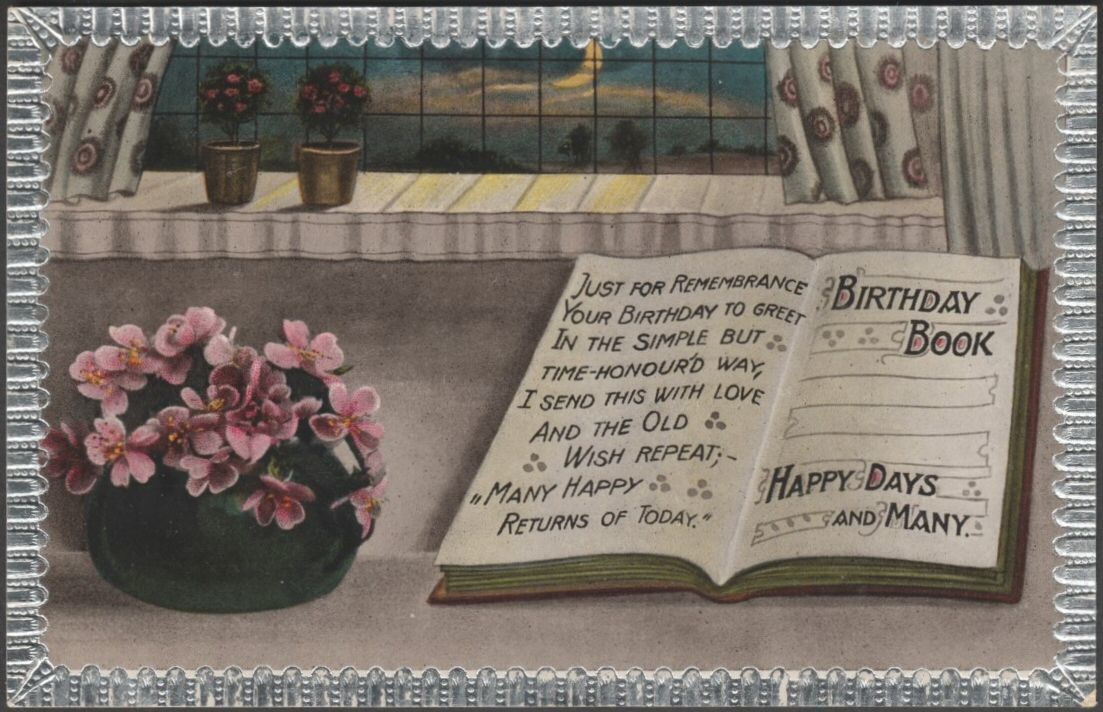 JUST FOR REMEMBRANCE
YOUR BIRTHDAY TO GREET
IN THE SIMPLE BUT
TIME-HONOUR'D WAY,
I SEND THIS WITH LOVE
AND THE OLD
WISH REPEAT;-
„MANY HAPPY
RETURNS OF TODAY."
BIRTHDAY
BOOK
HAPPY DAYS
AND MANY.